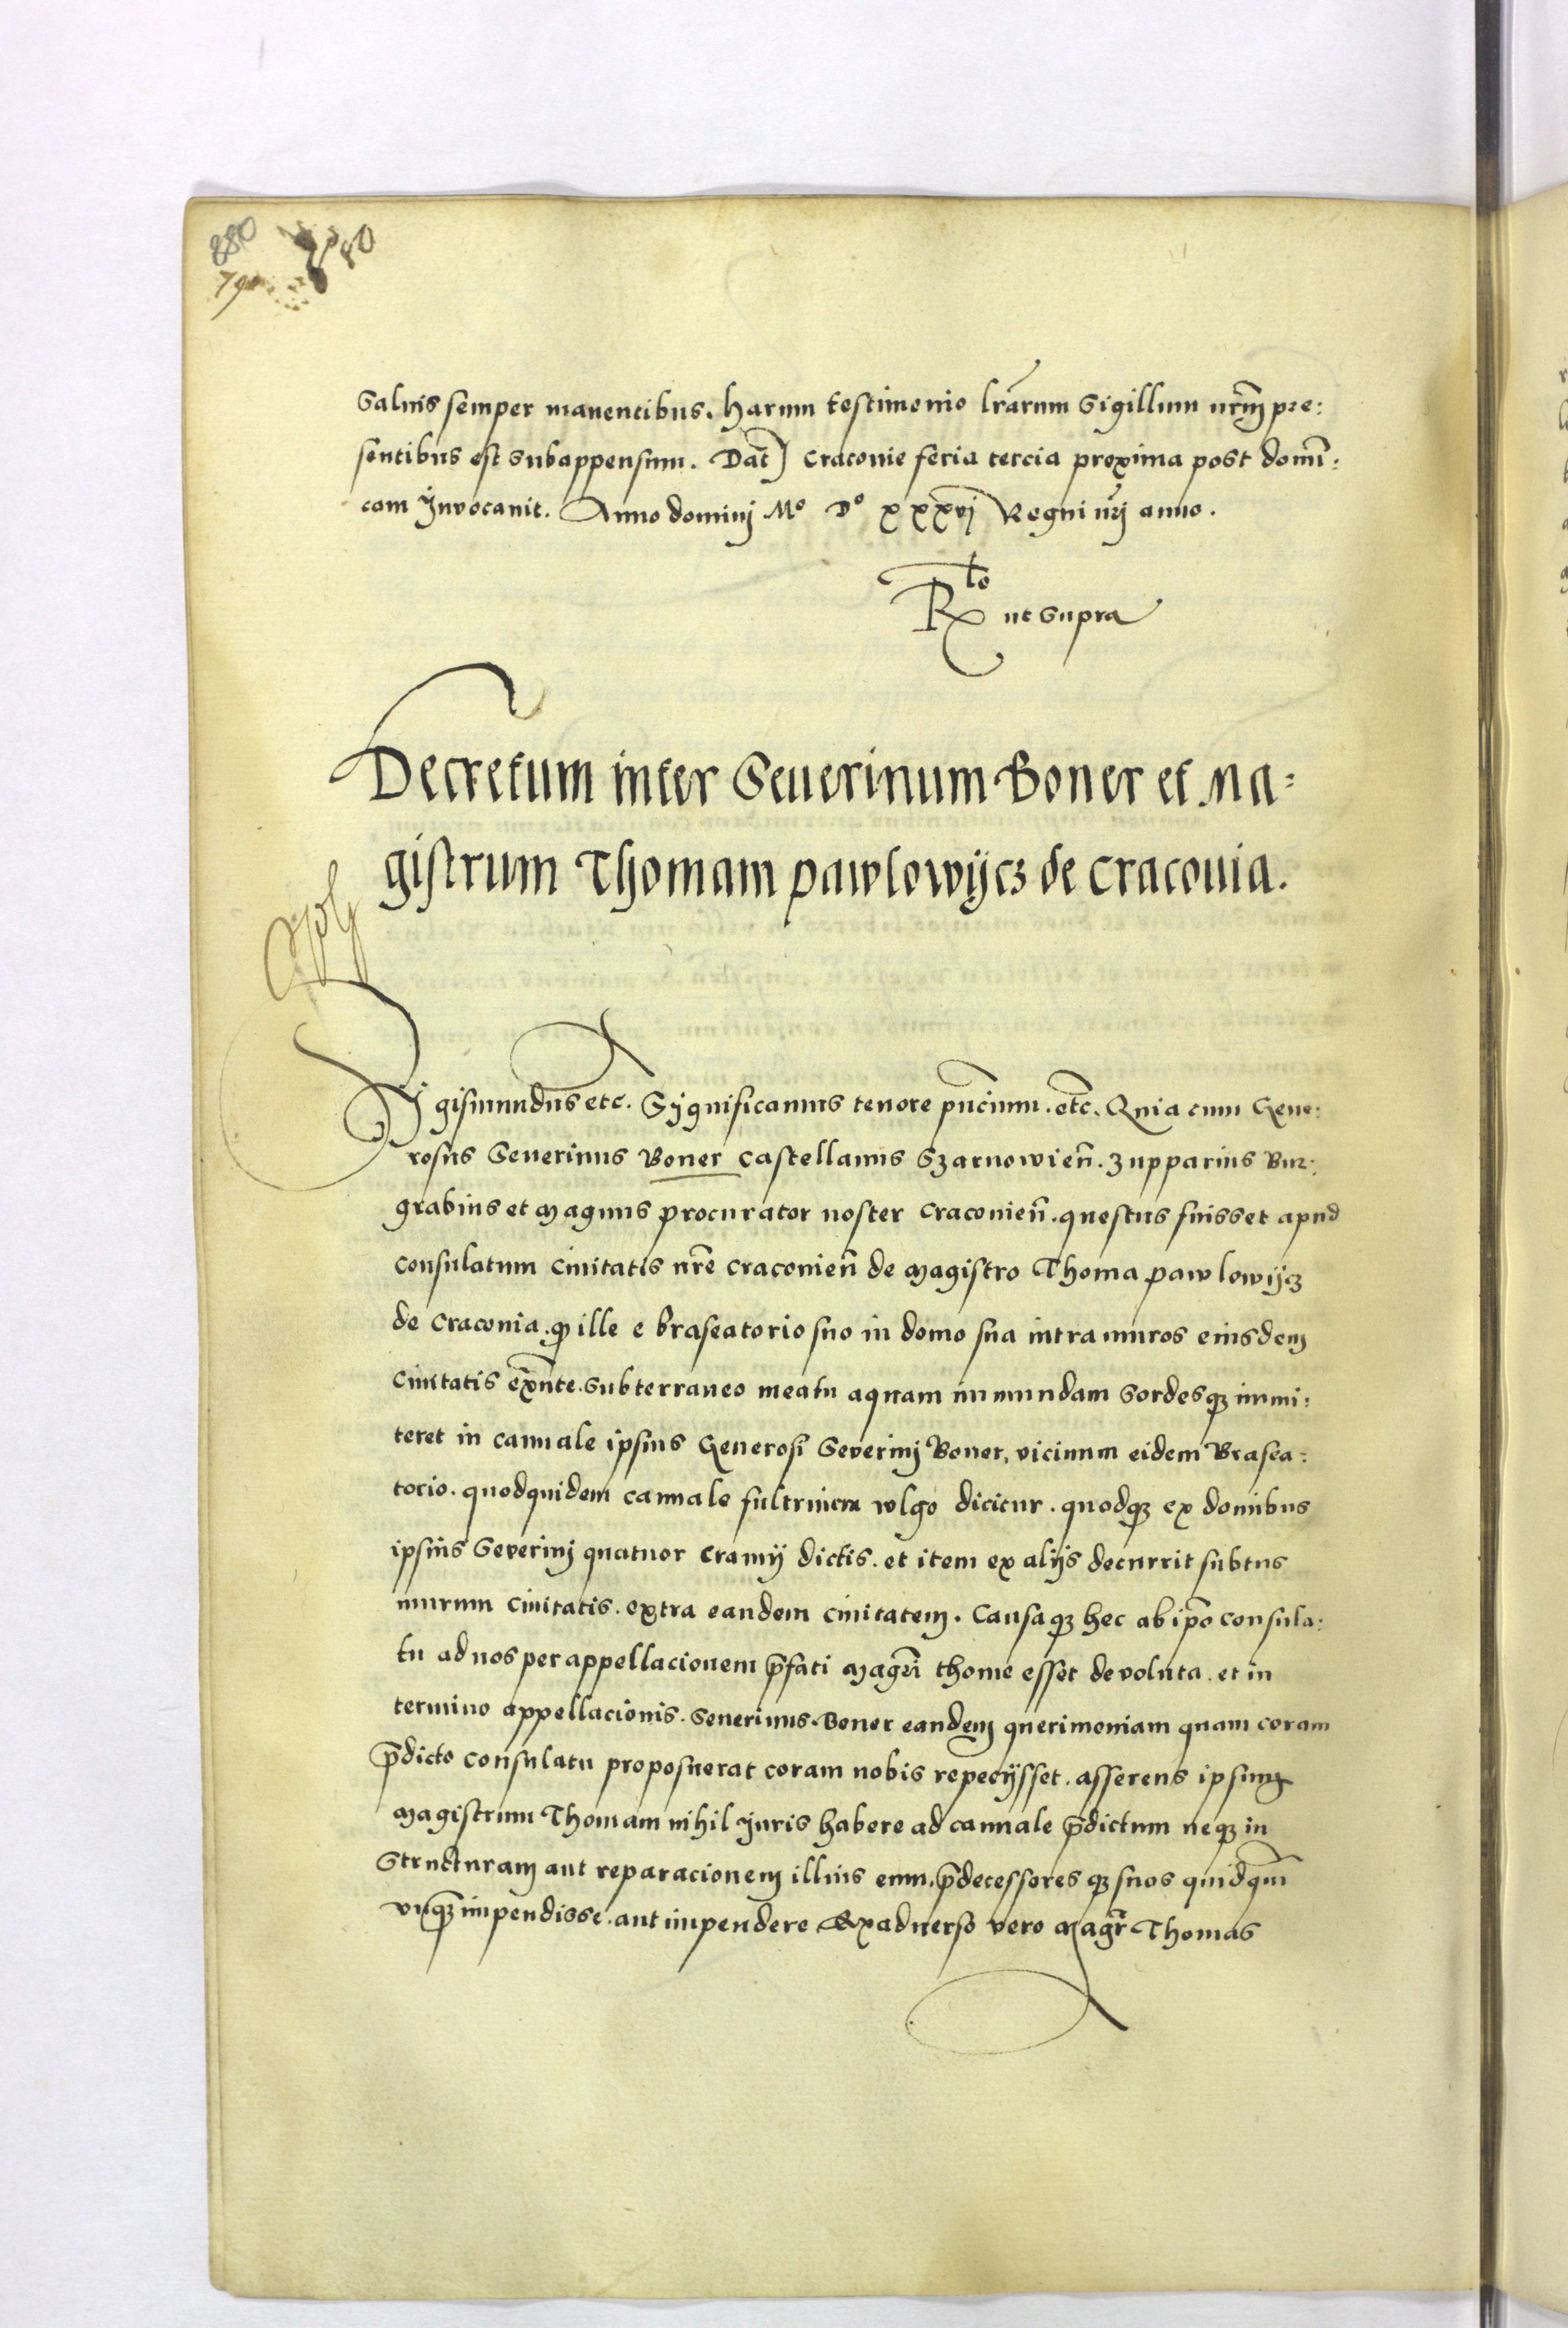 880 80
79
Saluis semper manentibus. Harum testimonio lrarum Sigillum nrm pre:
sentibus est subappensum. Dat Cracouie feria tercia proxima post domi:
cam Inuocauit. Anno dominj Mo Do xxxvj Regni nrj anno.
Rto ut supra
Decretum inter Seuerinum Boner et Ma:
gistrum Thomam pawlowijcz de Cracouia.
Sigismundus etc. Sygnificamus tenore pncium. etc. Quia cum Gene:
rosus Seuerinus Boner Castellanus Szarnowien. zupparius Bur:
grabius et Magnus procurator noster Cracouien. questus fuisset apud
Consulatum Ciuitatis nre Cracouien de Magistro Thoma pawlowijcz
de Cracouia. qp ille e braseatorio suo in domo sua intra muros eiusdem
Ciuitatis exnte. Subterraneo meatu aquam immundam Sordesqz immi:
teret in cannale ipsius Generosi Seuerinj Boner, vicinum eidem Brasea:
torio. quodquidem cannale sultrinicza wlgo dicitur. quodqz ex domibus
ipsius Seuerinj quatuor Cramij dictis. et item ex alijs decurrit subtus
murum Ciuitatis. extra eandem ciuitatem. Causaqz hec ab ipo Consula:
tu ad nos per appellacionem pfati Magri thome esset deuoluta. et in
termino appellacionis. Seuerinus Boner eandem querimoniam quam coram
pdicto Consulatu proposuerat coram nobis repecijsset. asserens ipsum
Magistrum Thomam nihil Juris habere ad cannale pdictum neqz in
Structuram aut reparacionem illius eum. pdecessores qz suos quidqum
vnqz impendisse. aut impendere Exaduerso vero Magr Thomas